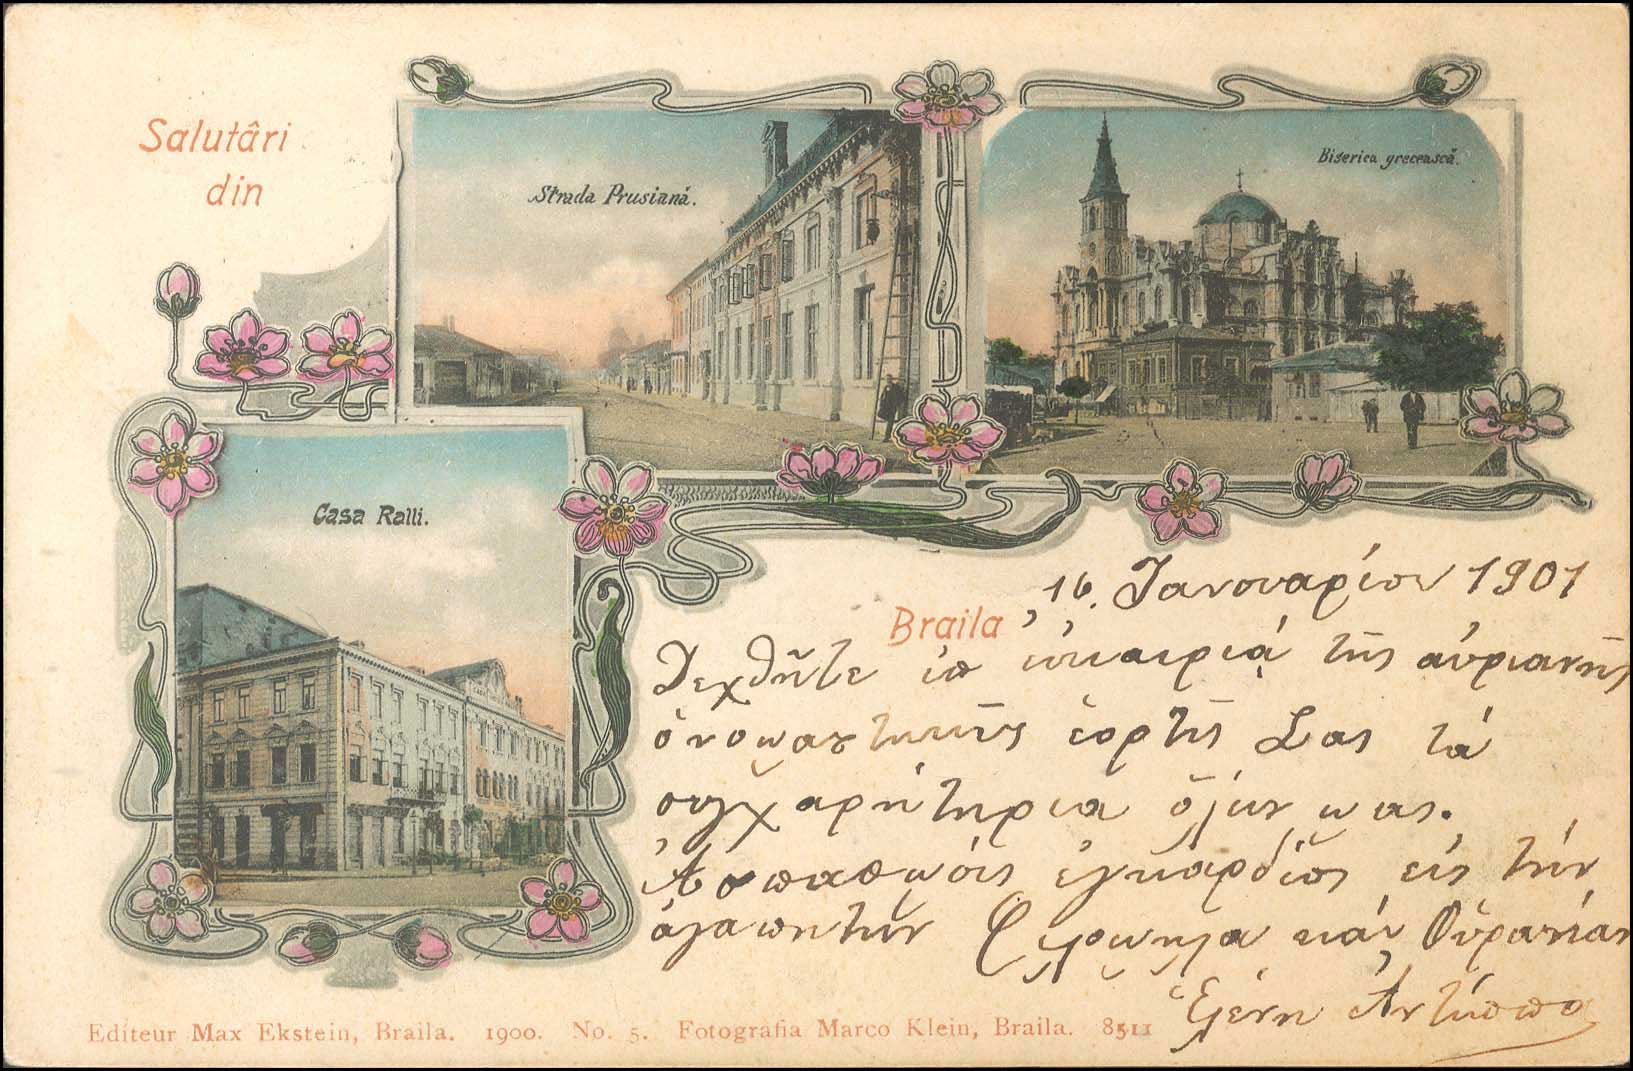 Salutâri
din
Strada Prusiană.
Biserica grecească.
Casa Ralli.
Braila
16. Ἰανουαρίου 1901
Δεχθῆτε ἐπ' εὐκαιρίᾳ τῆς αὐριανῆς
ὀνομαστικῆς ἑορτῆς Σας τά
συγχαρητήρια ὅλων μας.
Ἀσπασμούς ἐγκαρδίους εἰς τήν
ἀγαπητήν Φιλομήλα καί Οὐρανίαν
Ἑλένη Ἀντύππα
Editeur Max Ekstein, Braila. 1900. No. 5. Fotografia Marco Klein, Braila. 8511